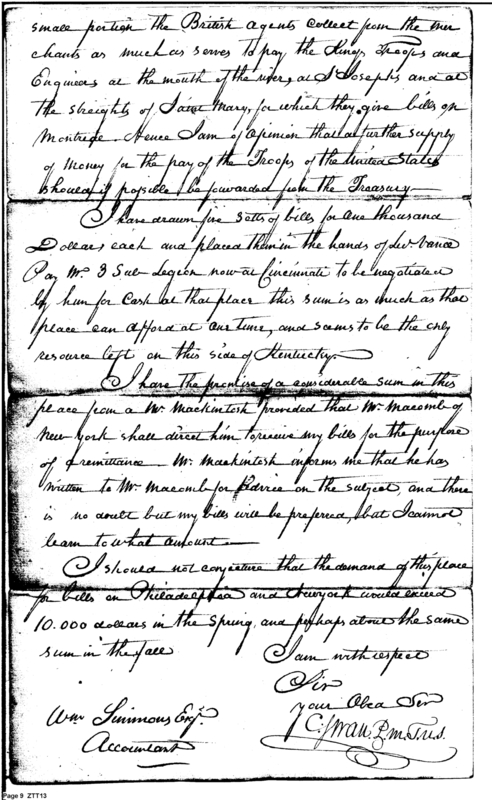 small portion the British agents collect from the mer
chants as much as serves to pay the Kings Troops and
Engineers at the mouth of the river, at St Josephs and at
the streights of Saint Mary, for which they give bills on
Montreal. Hence I am of opinion that a further supply
of money for the pay of the Troops of the United States
should if possible be forwarded from the Treasury —
I have drawn five Setts of bills for one thousand
Dollars each and placed them in the hands of Lt Vance
Pay Mr 3 Sub Legion now at Cincinnati to be negotiated
by him for Cash at that place this sum is as much as that
place can afford at one time, and seems to be the only
resource left on this side of Kentucky —
I have the promise of a considerable sum in this
place from a Mr Mackintosh provided that Mr Macomb of
New York shall direct him to receive my bills for the purpose
of remittance — Mr Mackintosh informs me that he has
written to Mr Macomb for Advice on the subject, and there
is no doubt but my bills will be preferred, but I cannot
learn to what amount —
I should not conjecture that the demand of this place
for bills on Philadelphia and Newyork would exceed
10.000 dollars in the Spring, and perhaps about the same
sum in the fall
I am with respect
Sir
your Obed Ser
C. Swan P.m.T.U.S.
Wm Simmons Esqr.
Accountant
Page 9 ZTT13